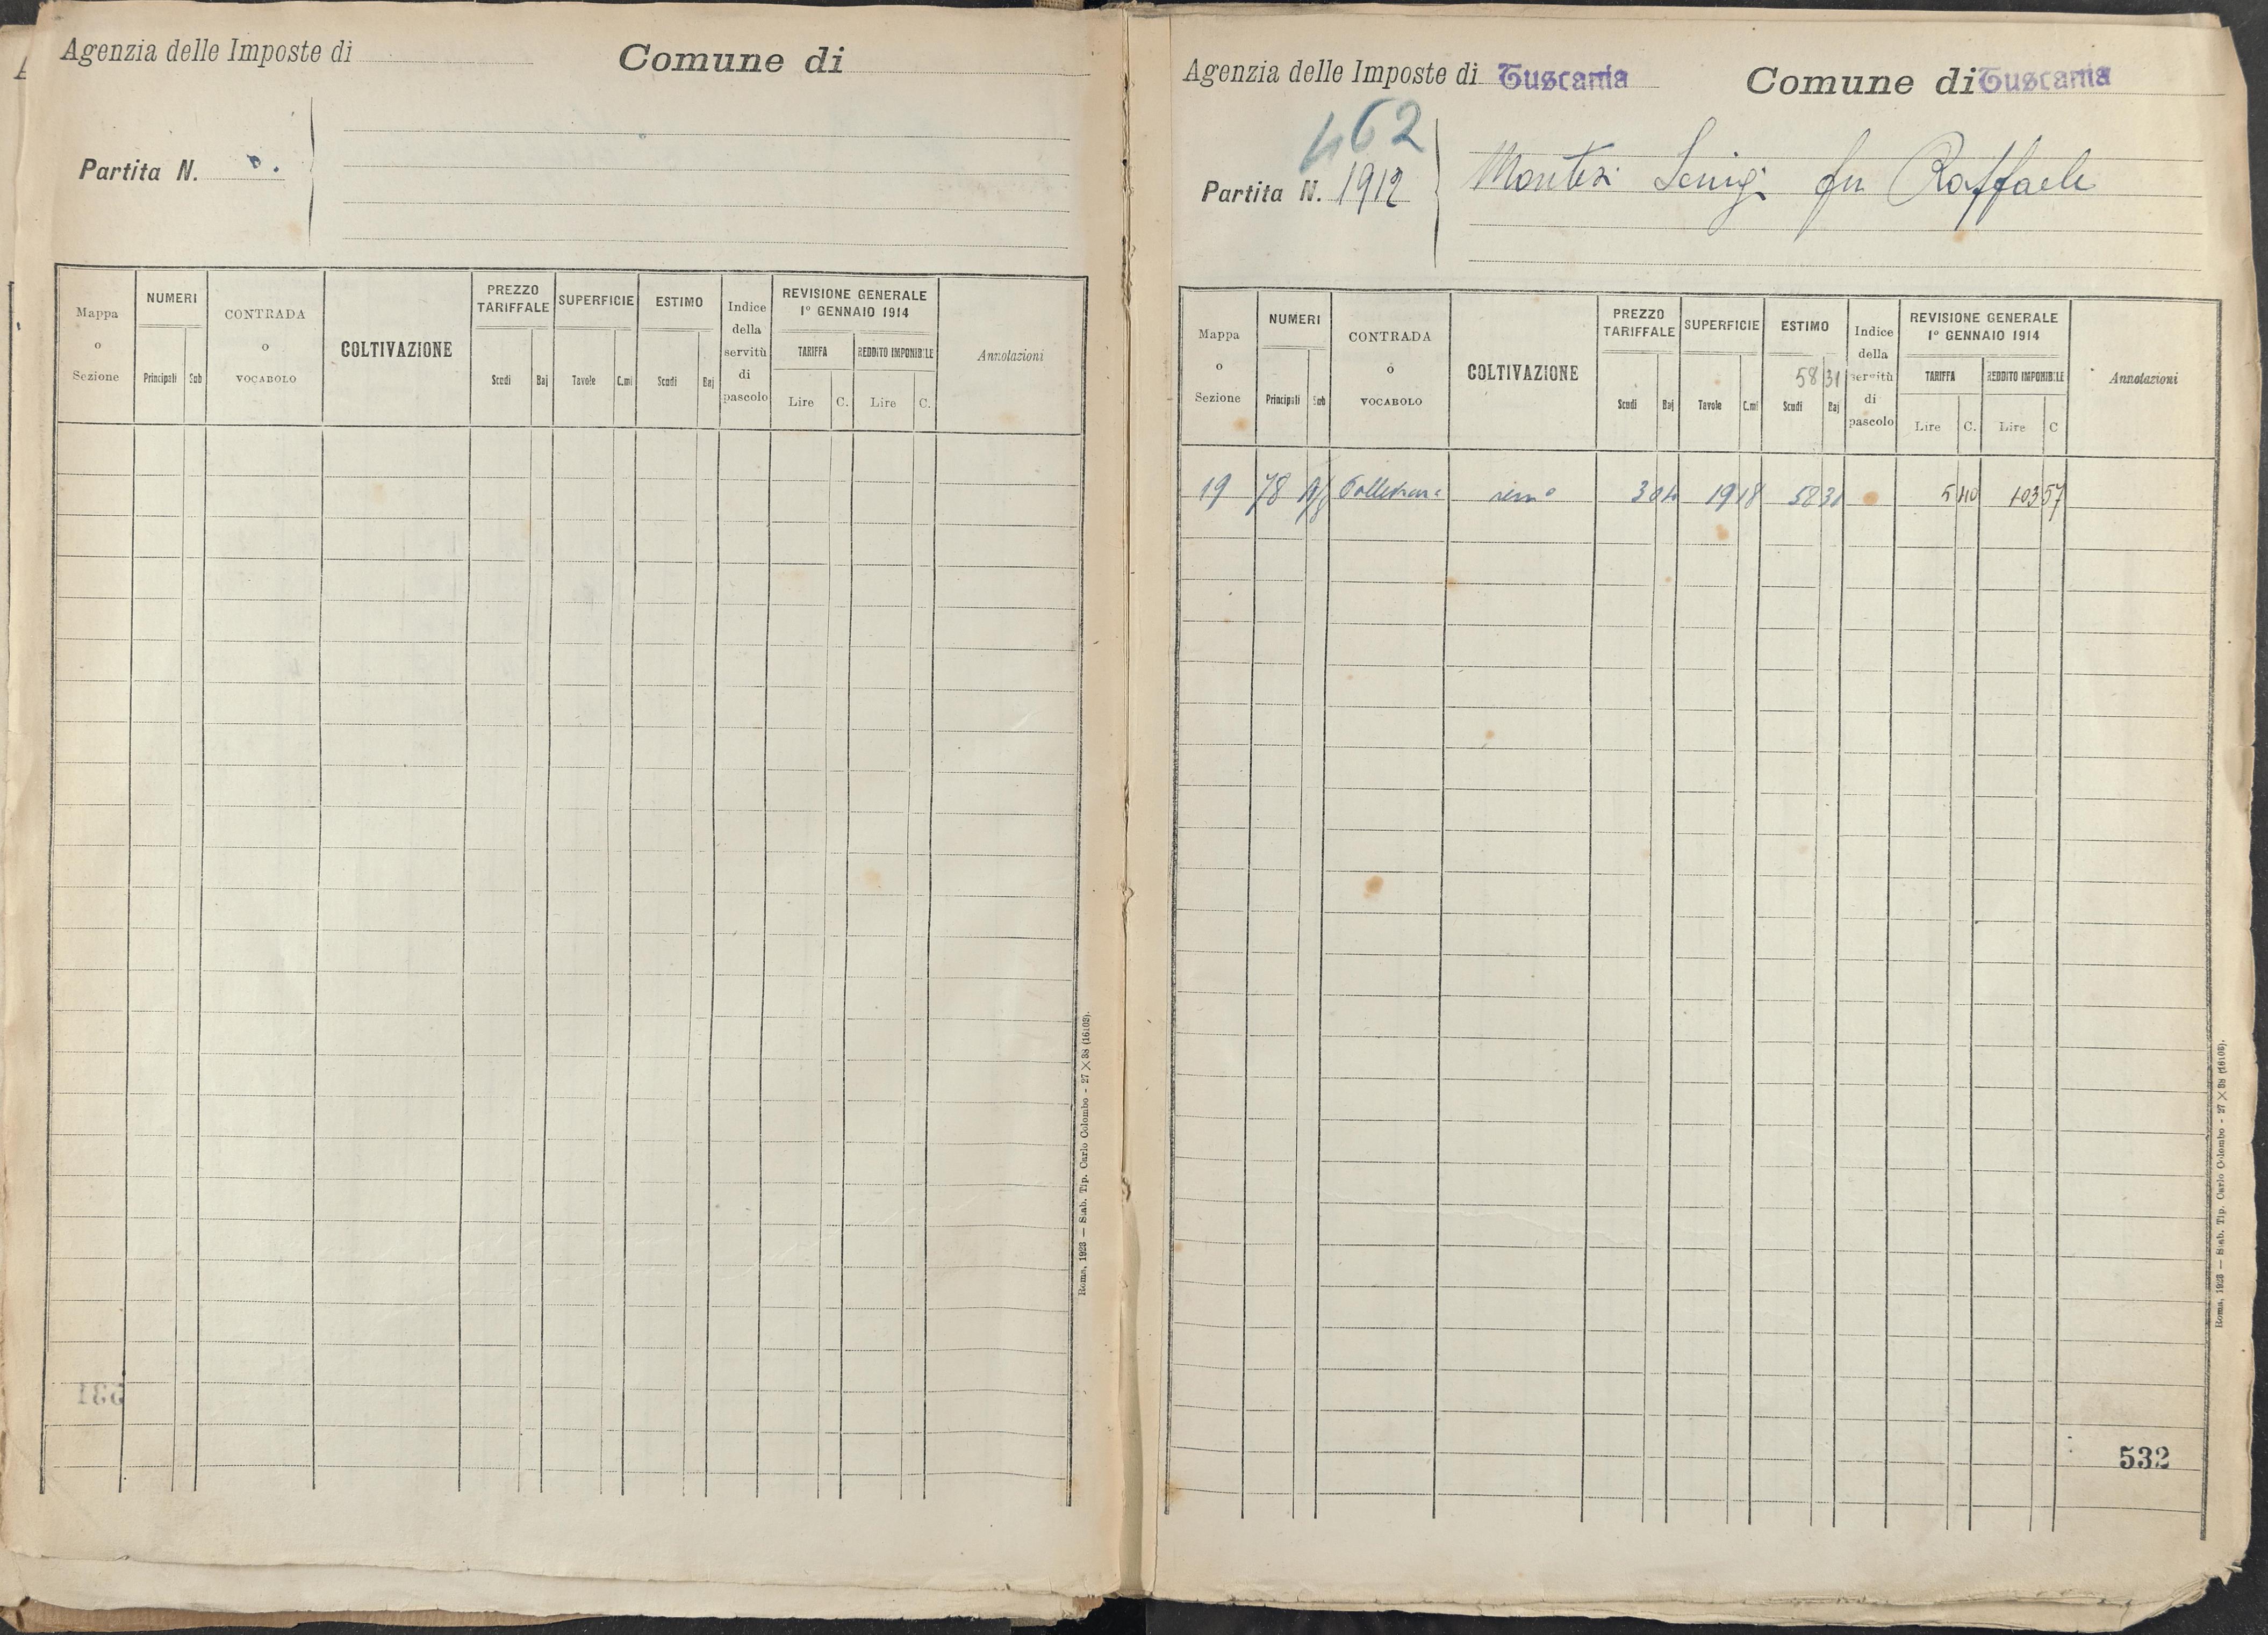 Agenzia delle Imposte di
Comune di
Partita N.
Mappa o Sezione
NUMERI
Principali
Sub
CONTRADA o VOCABOLO
COLTIVAZIONE
PREZZO TARIFFALE
Scudi
Baj
SUPERFICIE
Tavole
C.mi
ESTIMO
Scudi
Baj
Indice della servitù di pascolo
REVISIONE GENERALE
1º GENNAIO 1914
TARIFFA
Lire
C.
REDDITO IMPONIBILE
Lire
C.
Annotazioni
Roma, 1923 — Stab. Tip. Carlo Colombo - 27 X 38 (16102).
531
Agenzia delle Imposte di Tuscania
Comune di Tuscania
462
Partita N. 1912
Montesi Luigi fu Raffaele
Mappa o Sezione
NUMERI
Principali
Sub
CONTRADA o VOCABOLO
COLTIVAZIONE
PREZZO TARIFFALE
Scudi
Baj
SUPERFICIE
Tavole
C.mi
ESTIMO
58 31
Scudi
Baj
Indice della servitù di pascolo
REVISIONE GENERALE
1º GENNAIO 1914
TARIFFA
Lire
C.
REDDITO IMPONIBILE
Lire
C
Annotazioni
19 78 3 04 19 18 58 31 5 40 103 57
Roma, 1923 — Stab. Tip. Carlo Colombo - 27 X 38 (16106).
532